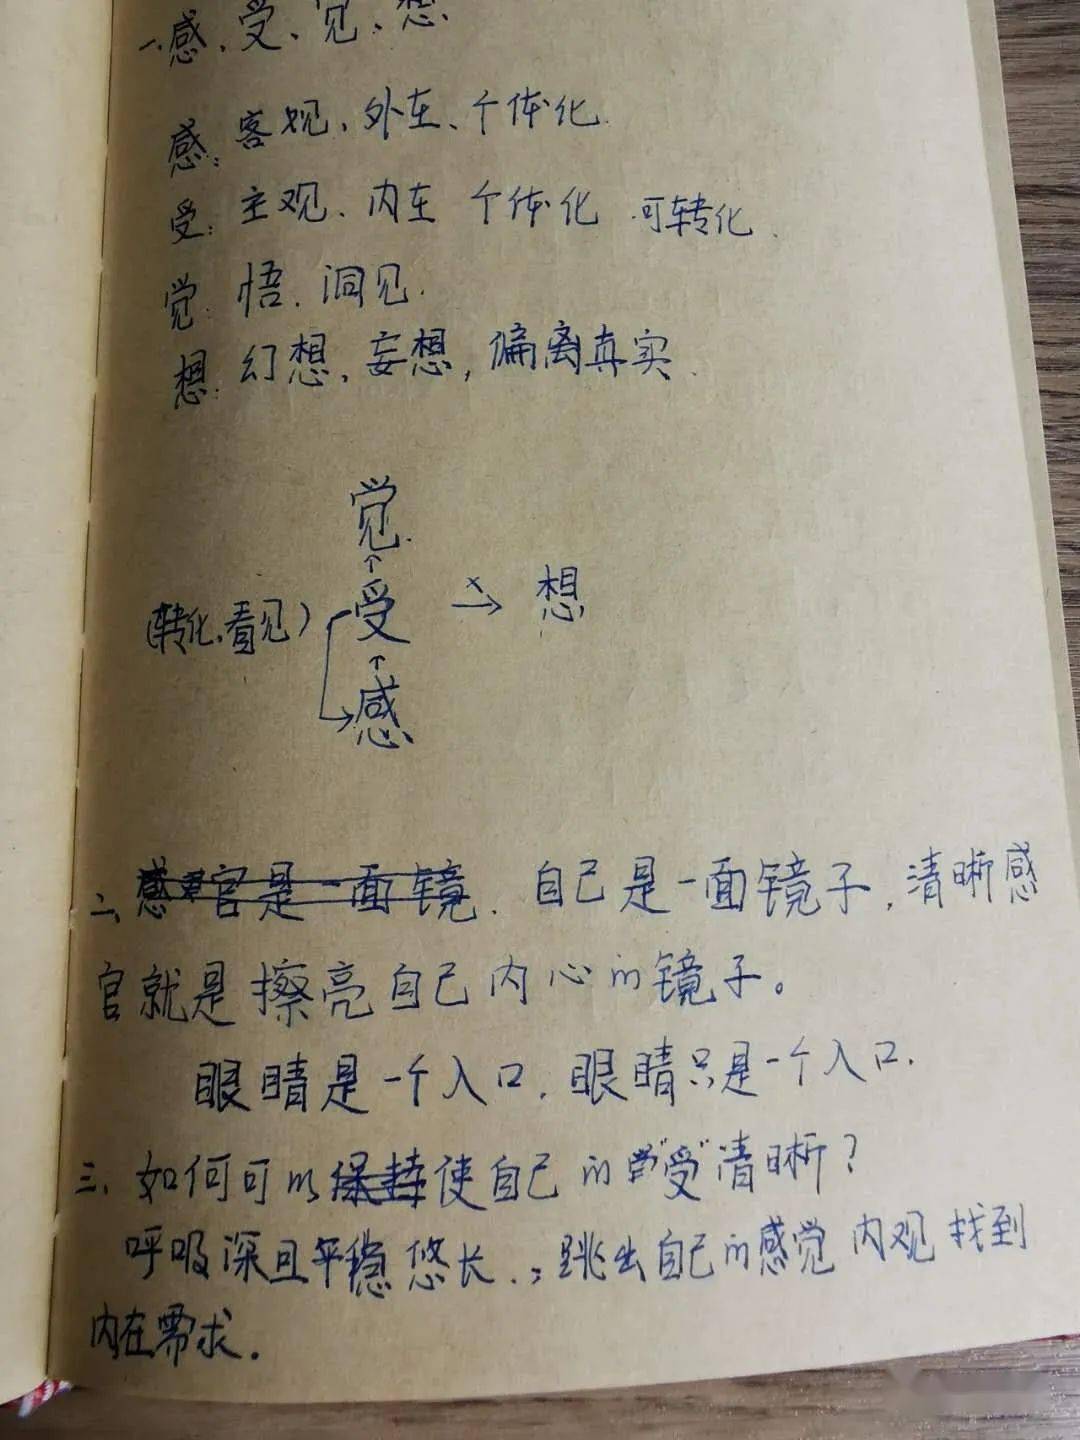 一、感、受、觉、想
感：客观、外在、个体化.
受：主观、内在 个体化 可转化.
觉：悟、洞见.
想：幻想、妄想，偏离真实.
觉.
↑
(转化、看见) 受 × → 想
↑
感
二、感官是一面镜. 自己是一面镜子，清晰感
官就是擦亮自己内心的镜子。
眼睛是一个入口，眼睛只是一个入口.
三、如何可以使自己的“受”清晰？
呼吸深且平稳悠长.；跳出自己的感觉 内观 找到
内在需求.